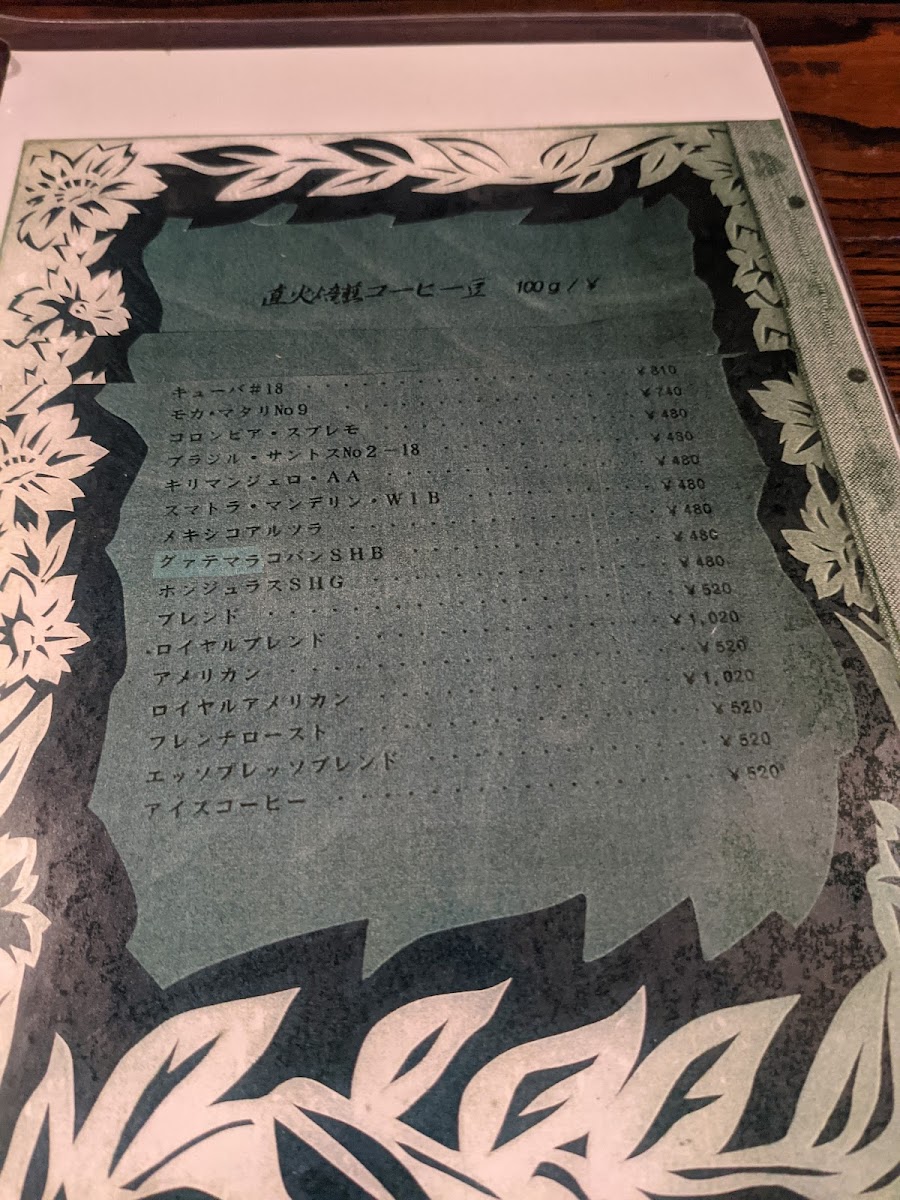 直火焙煎コーヒー豆 100g/¥
キューバ#18 ・・・・・・・・・・・・・・・ ¥810
モカ・マタリNo9 ・・・・・・・・・・・・・・・ ¥740
コロンビア・スプレモ ・・・・・・・・・・・・ ¥480
ブラジル・サントスNo2-18 ・・・・・・・・・ ¥480
キリマンジェロ・AA ・・・・・・・・・・・・・ ¥480
スマトラ・マンデリン・WIB ・・・・・・・・・ ¥480
メキシコアルツラ ・・・・・・・・・・・・・・・ ¥480
グァテマラコバンSHB ・・・・・・・・・・・・ ¥480
ホンジュラスSHG ・・・・・・・・・・・・・・・ ¥480
ブレンド ・・・・・・・・・・・・・・・・・・・ ¥520
ロイヤルブレンド ・・・・・・・・・・・・・・・ ¥1,020
アメリカン ・・・・・・・・・・・・・・・・・・ ¥520
ロイヤルアメリカン ・・・・・・・・・・・・・・ ¥1,020
フレンチロースト ・・・・・・・・・・・・・・・ ¥520
エッソプレッソブレンド ・・・・・・・・・・・・ ¥520
アイスコーヒー ・・・・・・・・・・・・・・・・ ¥520